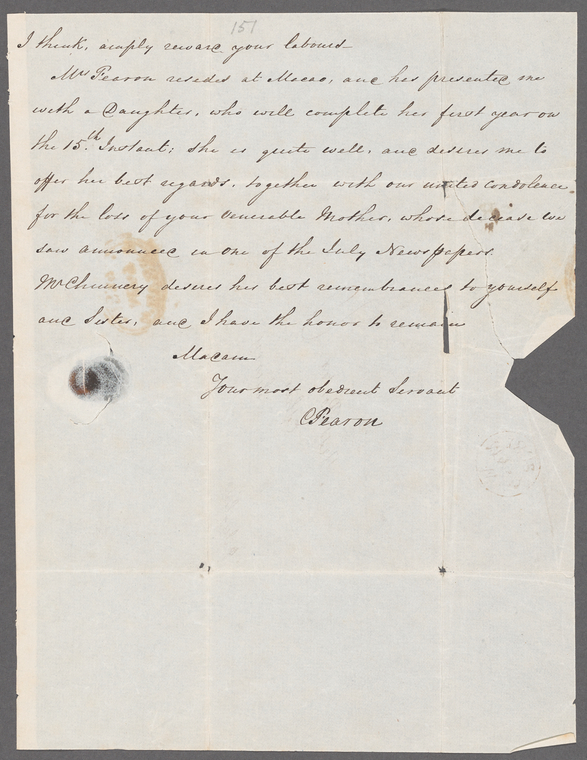 151
I think, amply reward your labours
Mrs Pearon resides at Macao, and has presented me
with a Daughter, who will complete her first year on
the 15th Instant; she is quite well, and desires me to
offer her best regards, together with our united Condolence
for the loss of your Venerable Mother, whose decease we
saw announced in one of the July Newspapers.
Mr Chinnery desires his best remembrances to yourself
and Sister, and I have the honor to remain
Madam
Your most obedient Servant
C Pearon